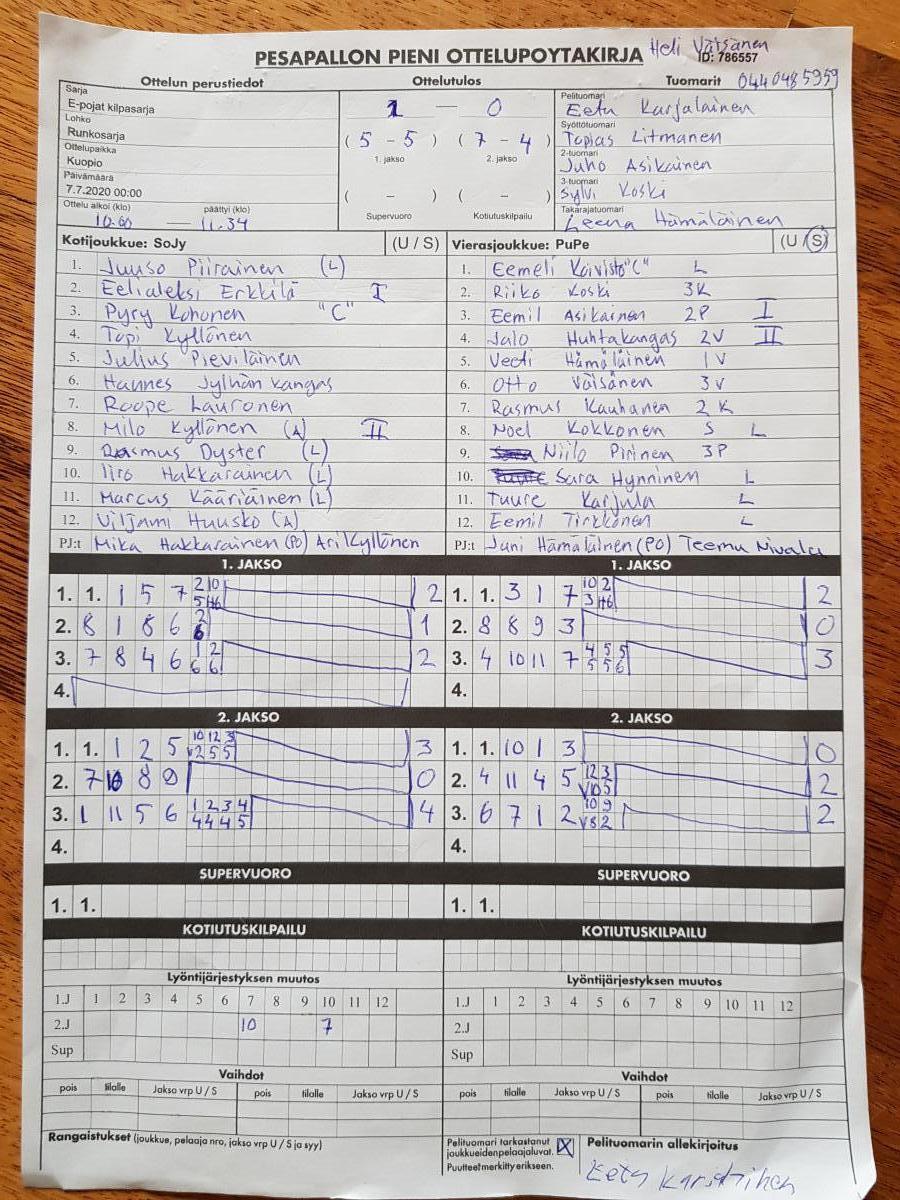 PESAPALLON PIENI OTTELUPOYTAKIRJA Heli Väisänen
ID: 786557
Ottelun perustiedot Ottelutulos Tuomarit 0440485959
Sarja
E-pojat kilpasarja
Lohko
Runkosarja
Ottelupaikka
Kuopio
Päivämäärä
7.7.2020 00:00
Ottelu alkoi (klo) päättyi (klo)
10.00 — 11.34
1 — 0
( 5 - 5 ) ( 7 - 4 )
1. jakso 2. jakso
( - ) ( - )
Supervuoro Kotiutuskilpailu
Pelituomari
Eetu Karjalainen
Syöttötuomari
Topias Litmanen
2-tuomari
Juho Asikainen
3-tuomari
Sylvi Koski
Takarajatuomari
Leena Hämäläinen
Kotijoukkue: SoJy (U / S) Vierasjoukkue: PuPe (U / S)
1. Juuso Piirainen (L) 1. Eemeli Koivisto "C" L
2. Eelialeksi Erkkilä I 2. Riiko Koski 3K
3. Pyry Kohonen "C" 3. Eemil Asikainen 2P I
4. Topi Kyllönen 4. Jalo Huhtakangas 2V II
5. Julius Pieviläinen 5. Veeti Hämäläinen 1V
6. Hannes Jylhänkangas 6. Otto Väisänen 3V
7. Roope Lauronen 7. Rasmus Kauhanen 2K
8. Milo Kyllönen (A) II 8. Noel Kokkonen S L
9. Rasmus Dyster (L) 9. Niilo Pirinen 3P
10. Iiro Hakkarainen (L) 10. Sara Hynninen L
11. Marcus Kääriäinen (L) 11. Tuure Karjula L
12. Viljami Huusko (A) 12. Eemil Tirkkonen L
PJ:t Mika Hakkarainen (PO) Ari Kyllönen PJ:t Juni Hämäläinen (PO) Teemu Nivala
1. JAKSO 1. JAKSO
1. 1. 1 5 7 2 10 5 H6 2 1. 1. 3 1 7 10 2 3 H6 2
2. 8 1 8 6 2 6 1 2. 8 8 9 3 0
3. 7 8 4 6 1 2 6 6 2 3. 4 10 11 7 4 5 5 5 5 6 3
4. 4.
2. JAKSO 2. JAKSO
1. 1. 1 2 5 10 12 3 V2 5 5 3 1. 1. 10 1 3 0
2. 7 10 8 9 0 2. 4 11 4 5 12 3 V10 5 2
3. 1 11 5 6 1 2 3 4 4 4 4 5 4 3. 6 7 1 2 10 9 V8 2 2
4. 4.
SUPERVUORO SUPERVUORO
1. 1. 1. 1.
KOTIUTUSKILPAILU KOTIUTUSKILPAILU
Lyöntijärjestyksen muutos Lyöntijärjestyksen muutos
1.J 1 2 3 4 5 6 7 8 9 10 11 12 1.J 1 2 3 4 5 6 7 8 9 10 11 12
2.J 10 7 2.J
Sup Sup
Vaihdot Vaihdot
pois tilalle Jakso vrp U / S pois tilalle Jakso vrp U / S pois tilalle Jakso vrp U / S pois tilalle Jakso vrp U / S
Rangaistukset (joukkue, pelaaja nro, jakso vrp U / S ja syy)
Pelituomari tarkastanut
joukkueidenpelaajaluvat. X
Puutteet merkitty erikseen.
Pelituomarin allekirjoitus